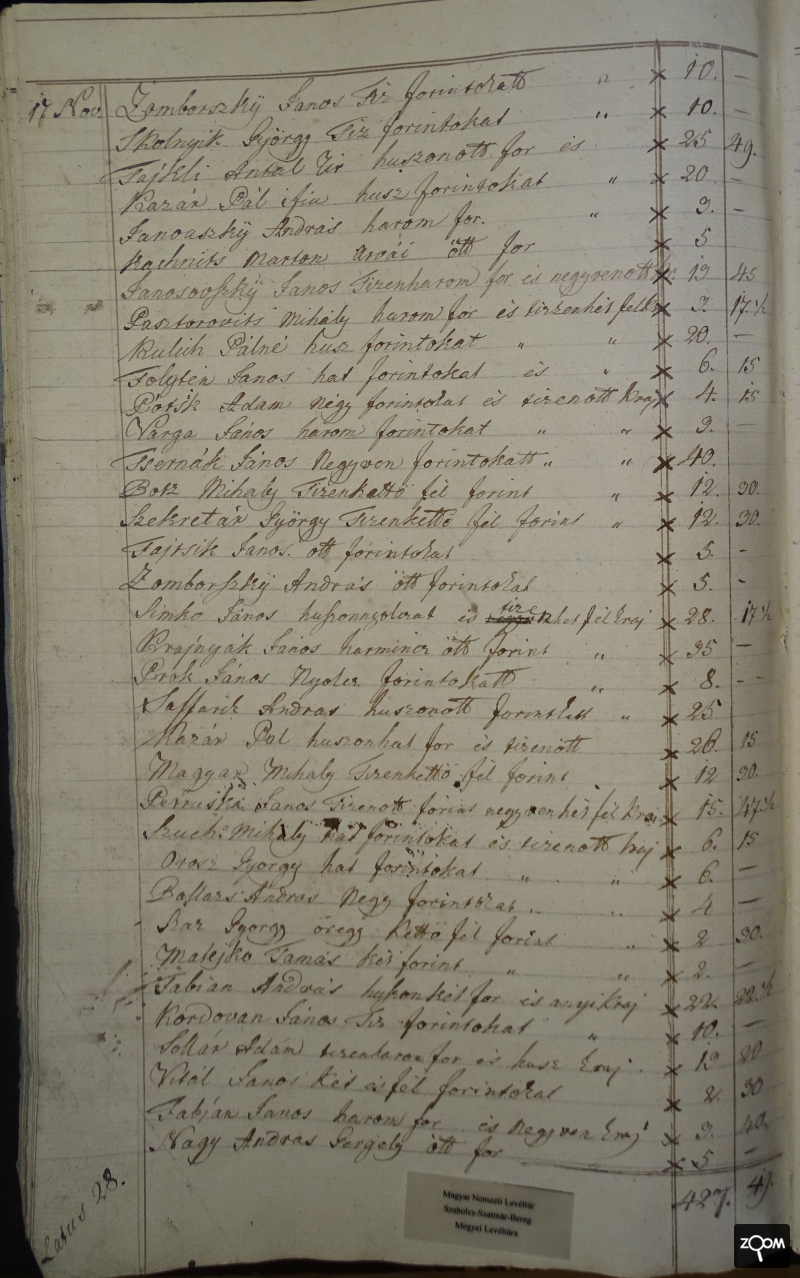 17 Nov. Zomborszkÿ Janos Tiz forintokatt " × 10. —
Skolnyik György Tiz forintokat " × 10. —
Fajkli Antal Ur huszonött for és × 25 49.
Kazár Pál ifiu husz forintokat " × 20 —
Janouszkÿ András harom for. " × 3. —
Marton ött for × 5
Janosovszkÿ Janos Tizenharom for és negyvenött × 13 45
Pasztorovits Mihály harom for és tizenhét × 3. 17 ½
Kulich Pálné husz forintokat " " × 20. —
Janos hat forintokat és " × 6. 15
Adam Négy forintokat és tizenött Kraj × 4. 15
Varga János harom forintokat " " × 3. —
Tsernák János Negyven forintokatt " " × 40.
Mihaly Tizenkettö fél forint " × 12. 30.
Szekretár György Tizenkettö fél forint " × 12. 30.
Fajtsik Janos. ött forintokat × 5. -
Zomborszkÿ András ött forintokat × 5. -
Simko János huszonnyolczat és tizenhet fél kraj × 28. 17 ½
Krajnyák János harmincz ött forint " × 35 —
Prok János Nyolcz forintokatt " × 8. - -
Saffarik Andras huszonött forintokat " × 25
Kazár Pal huszonhat for és tizenött × 26. 15
Magyar Mihaly Tizenkettö fél forint × 12 30.
Petruski Janos Tizenött forint negyvenhét fél kraj × 15. 47 ½
Mihály hat forintokat és tizenött kraj × 6. 15
Orosz György hat forintokat " " × 6. —
András Negy forintokat " " × 4 —
György öregg Kettö fél forint " × 2 30.
Matejko Tamás két forint " " × 2. —
Fabián András huszonkét for és anyi kraj × 22. 22 ½
Kordovan János Tiz forintokat " × 10. —
Sollár Adám tizenharom for és husz kraj. × 13 20
Vitál Janos Két és fél forintokat × 2 30
Fabján Janos harom for és Negyven kraj × 3. 40.
Nagy Andras Gergely ött for × 5 —
427. 49.
Latus 28.
Magyar Nemzeti Levéltár
Szabolcs-Szatmár-Bereg
Megyei Levéltára
ZOOM